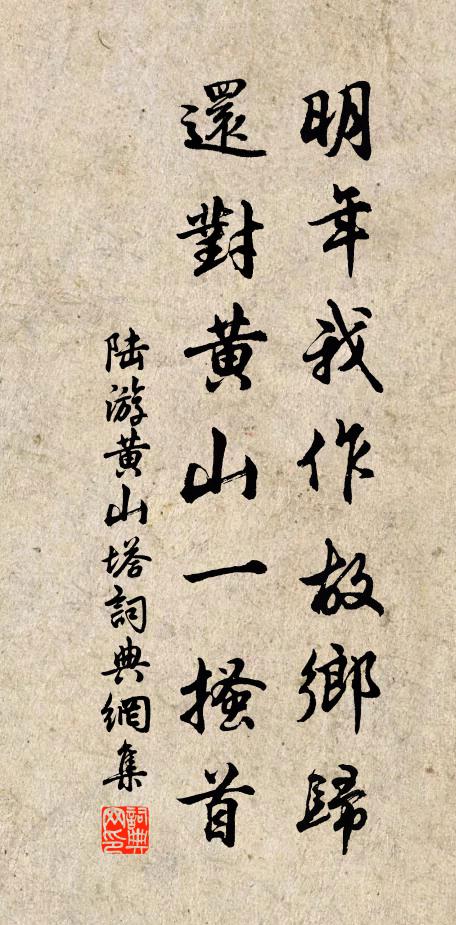 明年我作故鄉歸
還對黃山一搔首
陆游黄山塔詞典網集
詞典网印